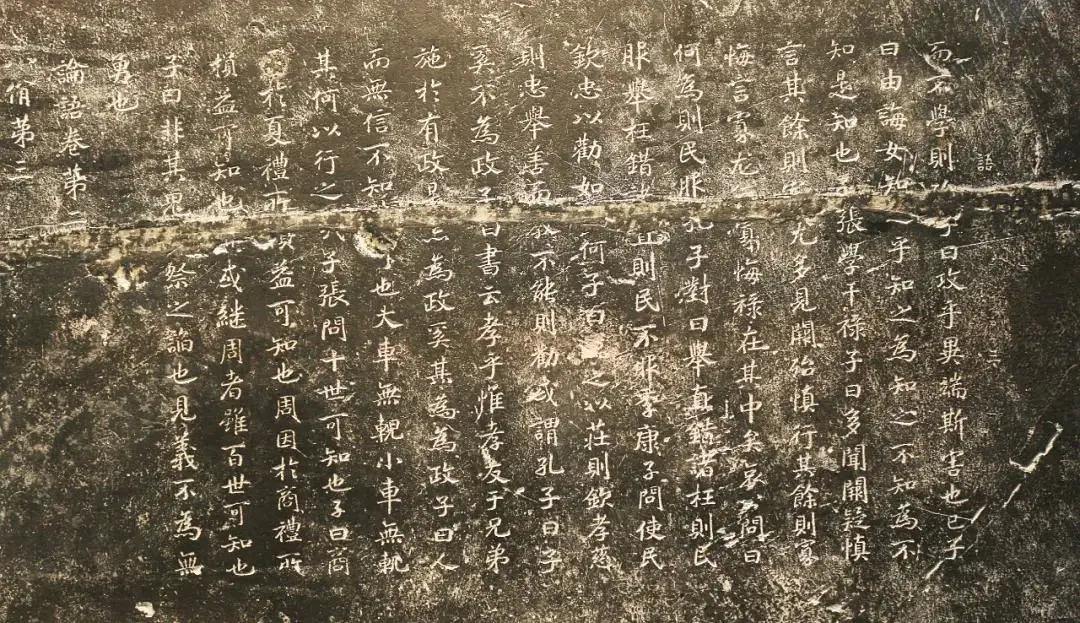 語 三
而不學則 子曰攻乎異端斯害也已子
曰由誨女知 乎知之為知之不知為不
知是知也子張學干祿子曰多聞闕疑慎
言其餘則 尤多見闕殆慎行其餘則寡
悔言寡尤 寡悔祿在其中矣哀 問曰
何為則民服孔子對曰舉直錯諸枉則民
服舉枉錯諸直則民不服季康子問使民
欽忠以勸如 何子曰 之以莊則欽孝慈
則忠舉善而教不能則勸或謂孔子曰子
奚不為政子曰書云孝乎惟孝友于兄弟
施於有政是亦為政奚其為為政子曰人
而無信不知 可也大車無輗小車無軏
其何以行之 子張問十世可知也子曰商
於夏禮所損益可知也周因於商禮所
損益可知也其或繼周者雖百世可知也
子曰非其鬼 祭之諂也見義不為無
勇也
論語卷第二
佾第三